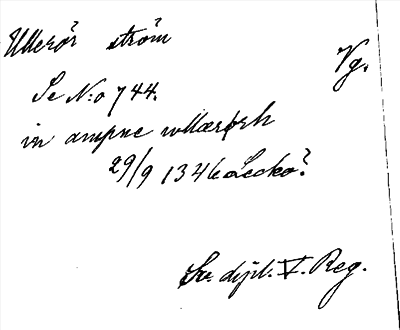 Ullerör ström
Vg.
Se N:o 744.
in ampne wllærørh
29/9 1346 Leckö?
Sv. dipl. V. Reg.